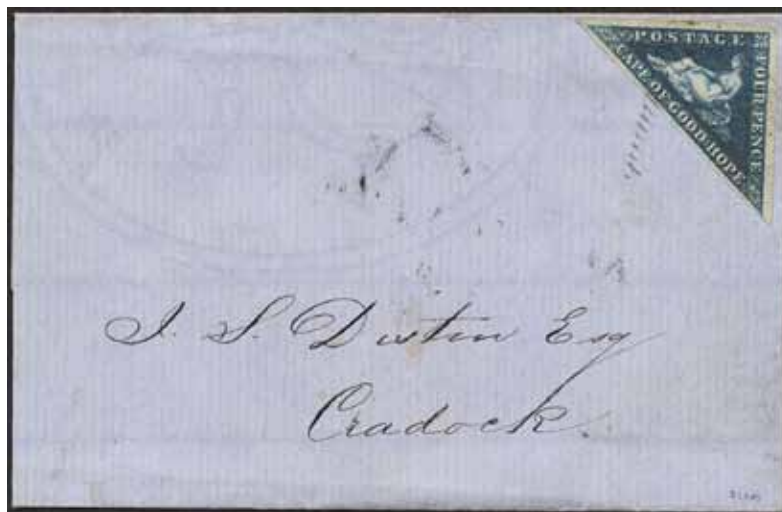 POSTAGE
FOUR PENCE
CAPE OF GOOD HOPE
J. S. Distin Esq
Cradock.